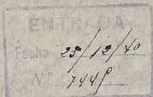 ENTRADA
Fecha 28/12/40
Nº 7448